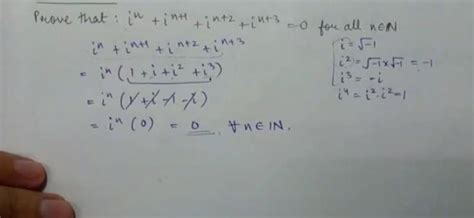 Prove that : iⁿ + iⁿ⁺¹ + iⁿ⁺² + iⁿ⁺³ = 0 for all n∈N
iⁿ + iⁿ⁺¹ + iⁿ⁺² + iⁿ⁺³
= iⁿ (1 + i + i² + i³)
= iⁿ (1 + i - 1 - i)
= iⁿ (0) = 0, ∀ n ∈ IN.
i = √-1
i² = √-1 × √-1 = -1
i³ = -i
i⁴ = i² · i² = 1